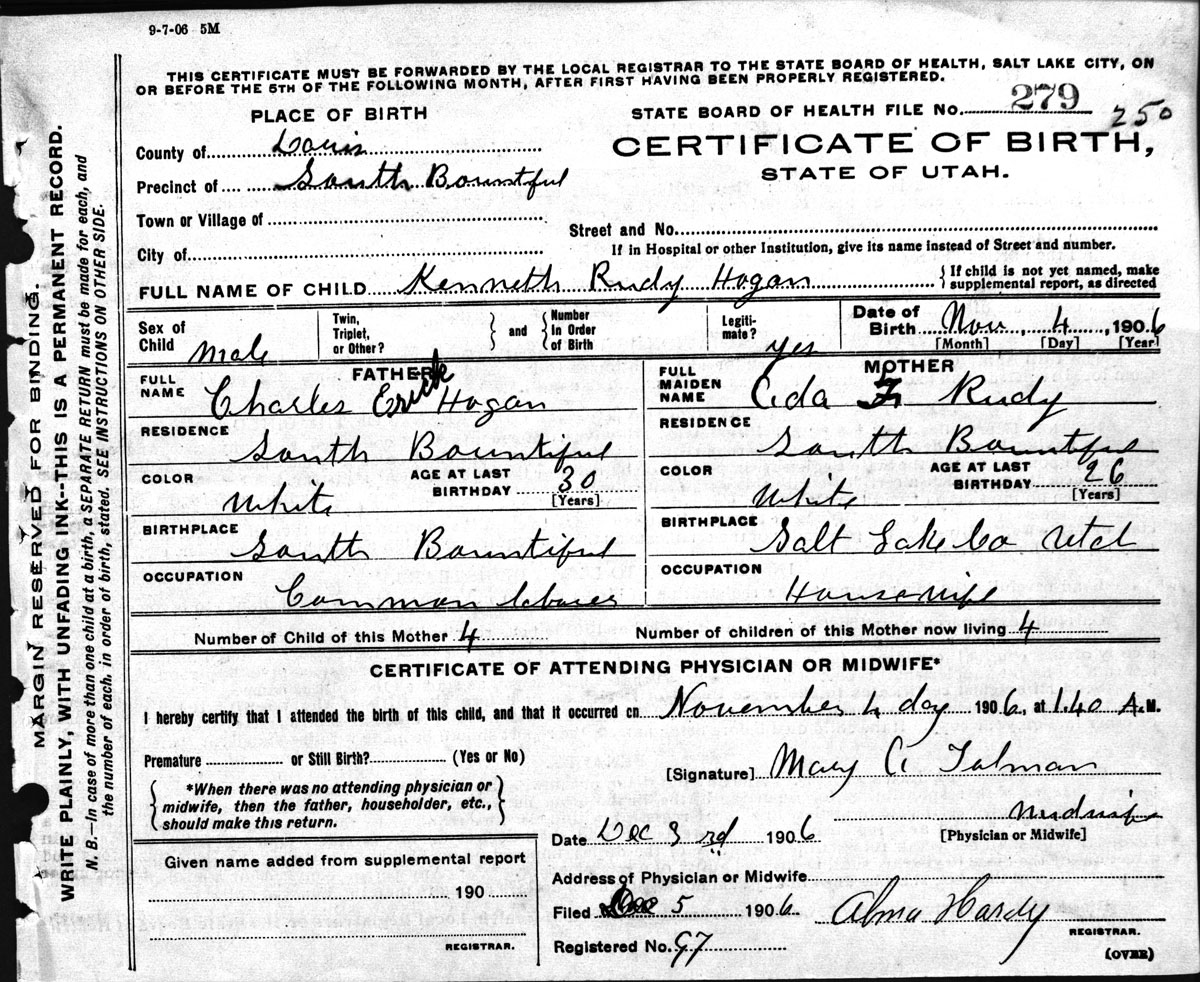 9-7-06 5M
THIS CERTIFICATE MUST BE FORWARDED BY THE LOCAL REGISTRAR TO THE STATE BOARD OF HEALTH, SALT LAKE CITY, ON
OR BEFORE THE 5TH OF THE FOLLOWING MONTH, AFTER FIRST HAVING BEEN PROPERLY REGISTERED.
PLACE OF BIRTH
STATE BOARD OF HEALTH FILE No. 279
250
CERTIFICATE OF BIRTH,
STATE OF UTAH.
County of
Precinct of South Bountiful
Town or Village of
Street and No.
City of
If in Hospital or other Institution, give its name instead of Street and number.
FULL NAME OF CHILD Kenneth Rudy Hogan
{ If child is not yet named, make
supplemental report, as directed
Sex of Child Male
Twin, Triplet, or Other? } and { Number In Order of Birth
Legiti-mate? yes
Date of Birth Nov, 4, 1906
[Month] [Day] [Year]
FATHER
FULL NAME Charles Erick Hogan
RESIDENCE South Bountiful
COLOR White
AGE AT LAST BIRTHDAY 30 [Years]
BIRTHPLACE South Bountiful
OCCUPATION Common laborer
MOTHER
FULL MAIDEN NAME Rudy
RESIDENCE South Bountiful
COLOR White
AGE AT LAST BIRTHDAY 26 [Years]
BIRTHPLACE Salt Lake Co Utah
OCCUPATION Housewife
Number of Child of this Mother 4
Number of children of this Mother now living 4
CERTIFICATE OF ATTENDING PHYSICIAN OR MIDWIFE*
I hereby certify that I attended the birth of this child, and that it occurred on November 4 day 1906, at 1.40 A.M.
Premature or Still Birth? (Yes or No)
[Signature] Mary C Tolman
{ *When there was no attending physician or
midwife, then the father, householder, etc.,
should make this return. }
Midwife
[Physician or Midwife]
Date Dec 3rd 1906
Given name added from supplemental report
190
REGISTRAR.
Address of Physician or Midwife
Filed Dec 5 1906 Alma Hardy
REGISTRAR.
Registered No. 97
(OVER)
MARGIN RESERVED FOR BINDING.
WRITE PLAINLY, WITH UNFADING INK--THIS IS A PERMANENT RECORD.
N. B.—In case of more than one child at a birth, a SEPARATE RETURN must be made for each, and
the number of each, in order of birth, stated. SEE INSTRUCTIONS ON OTHER SIDE.